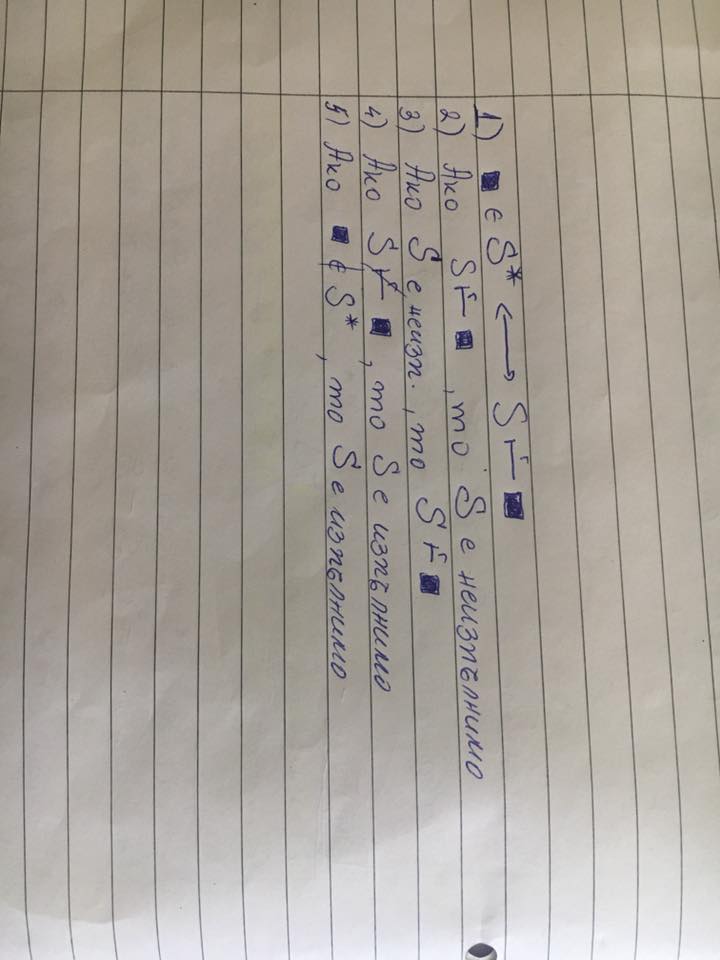 1) ■ ∈ S* ⟷ S ⊢ ■
2) Ако S ⊢ ■, то S е неизпълнимо
3) Ако S е неизп., то S ⊢ ■
4) Ако S ⊬ ■, то S е изпълнимо
5) Ако ■ ∉ S*, то S е изпълнимо